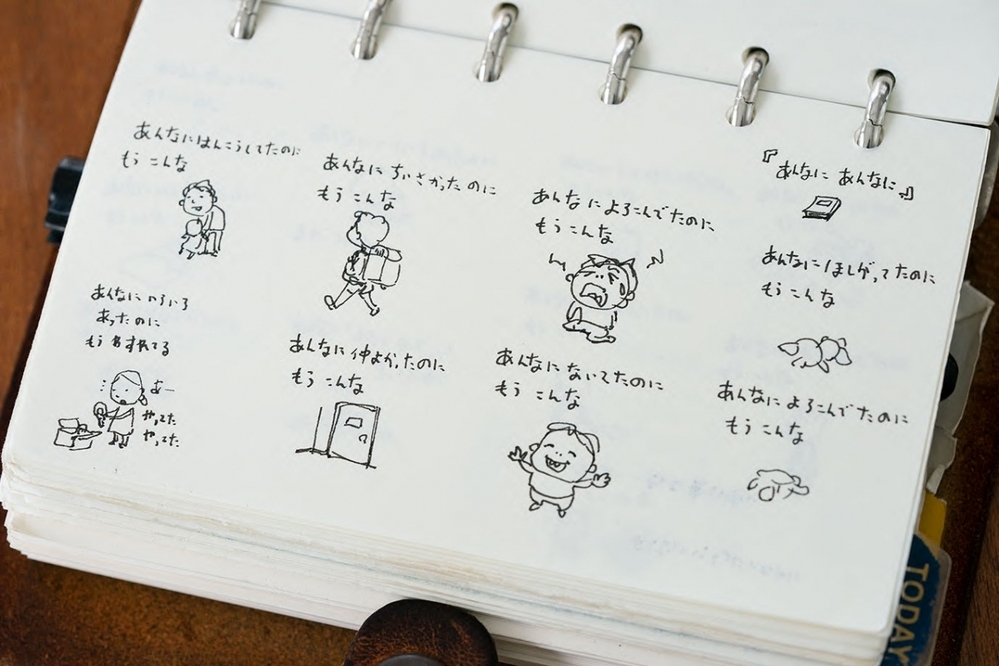 『あんなに あんなに』
あんなにほしがってたのに
もう こんな
あんなに よろこんでたのに
もう こんな
あんなに よろこんでたのに
もう こんな
あんなに ないてたのに
もう こんな
あんなに ちいさかったのに
もう こんな
あんなに 仲よかったのに
もう こんな
あんなにはんこうしてたのに
もう こんな
あんなに いろいろ
あったのに
もう わすれてる
あー
やってた
やってた
TODAY